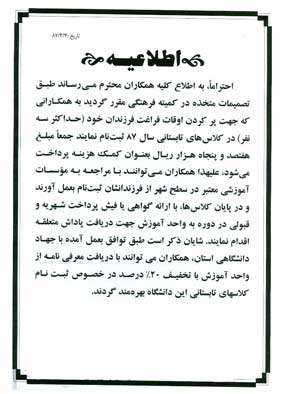 تاریخ: ۸۷/۳/۲۰
اطلاعیه
احتراماً، به اطلاع کلیه همکاران محترم می‌رساند طبق
تصمیمات متخذه در کمیته فرهنگی مقرر گردید به همکارانی
که جهت پر کردن اوقات فراغت فرزندان خود (حداکثر سه
نفر) در کلاس‌های تابستانی سال ۸۷ ثبت‌نام نمایند جمعاً مبلغ
هفتصد و پنجاه هزار ریال بعنوان کمک هزینه پرداخت
می‌شود، علیهذا همکاران می‌توانند با مراجعه به مؤسسات
آموزشی معتبر در سطح شهر از فرزندانشان ثبت‌نام بعمل آورند
و در پایان کلاس‌ها، با ارائه گواهی یا فیش پرداخت شهریه و
قبولی در دوره به واحد آموزش جهت دریافت پاداش متعلقه
اقدام نمایند. شایان ذکر است طبق توافق بعمل آمده با جهاد
دانشگاهی استان، همکاران می توانند با دریافت معرفی نامه از
واحد آموزش با تخفیف ۲۰٪ درصد در خصوص ثبت نام
کلاسهای تابستانی این دانشگاه بهره‌مند گردند.